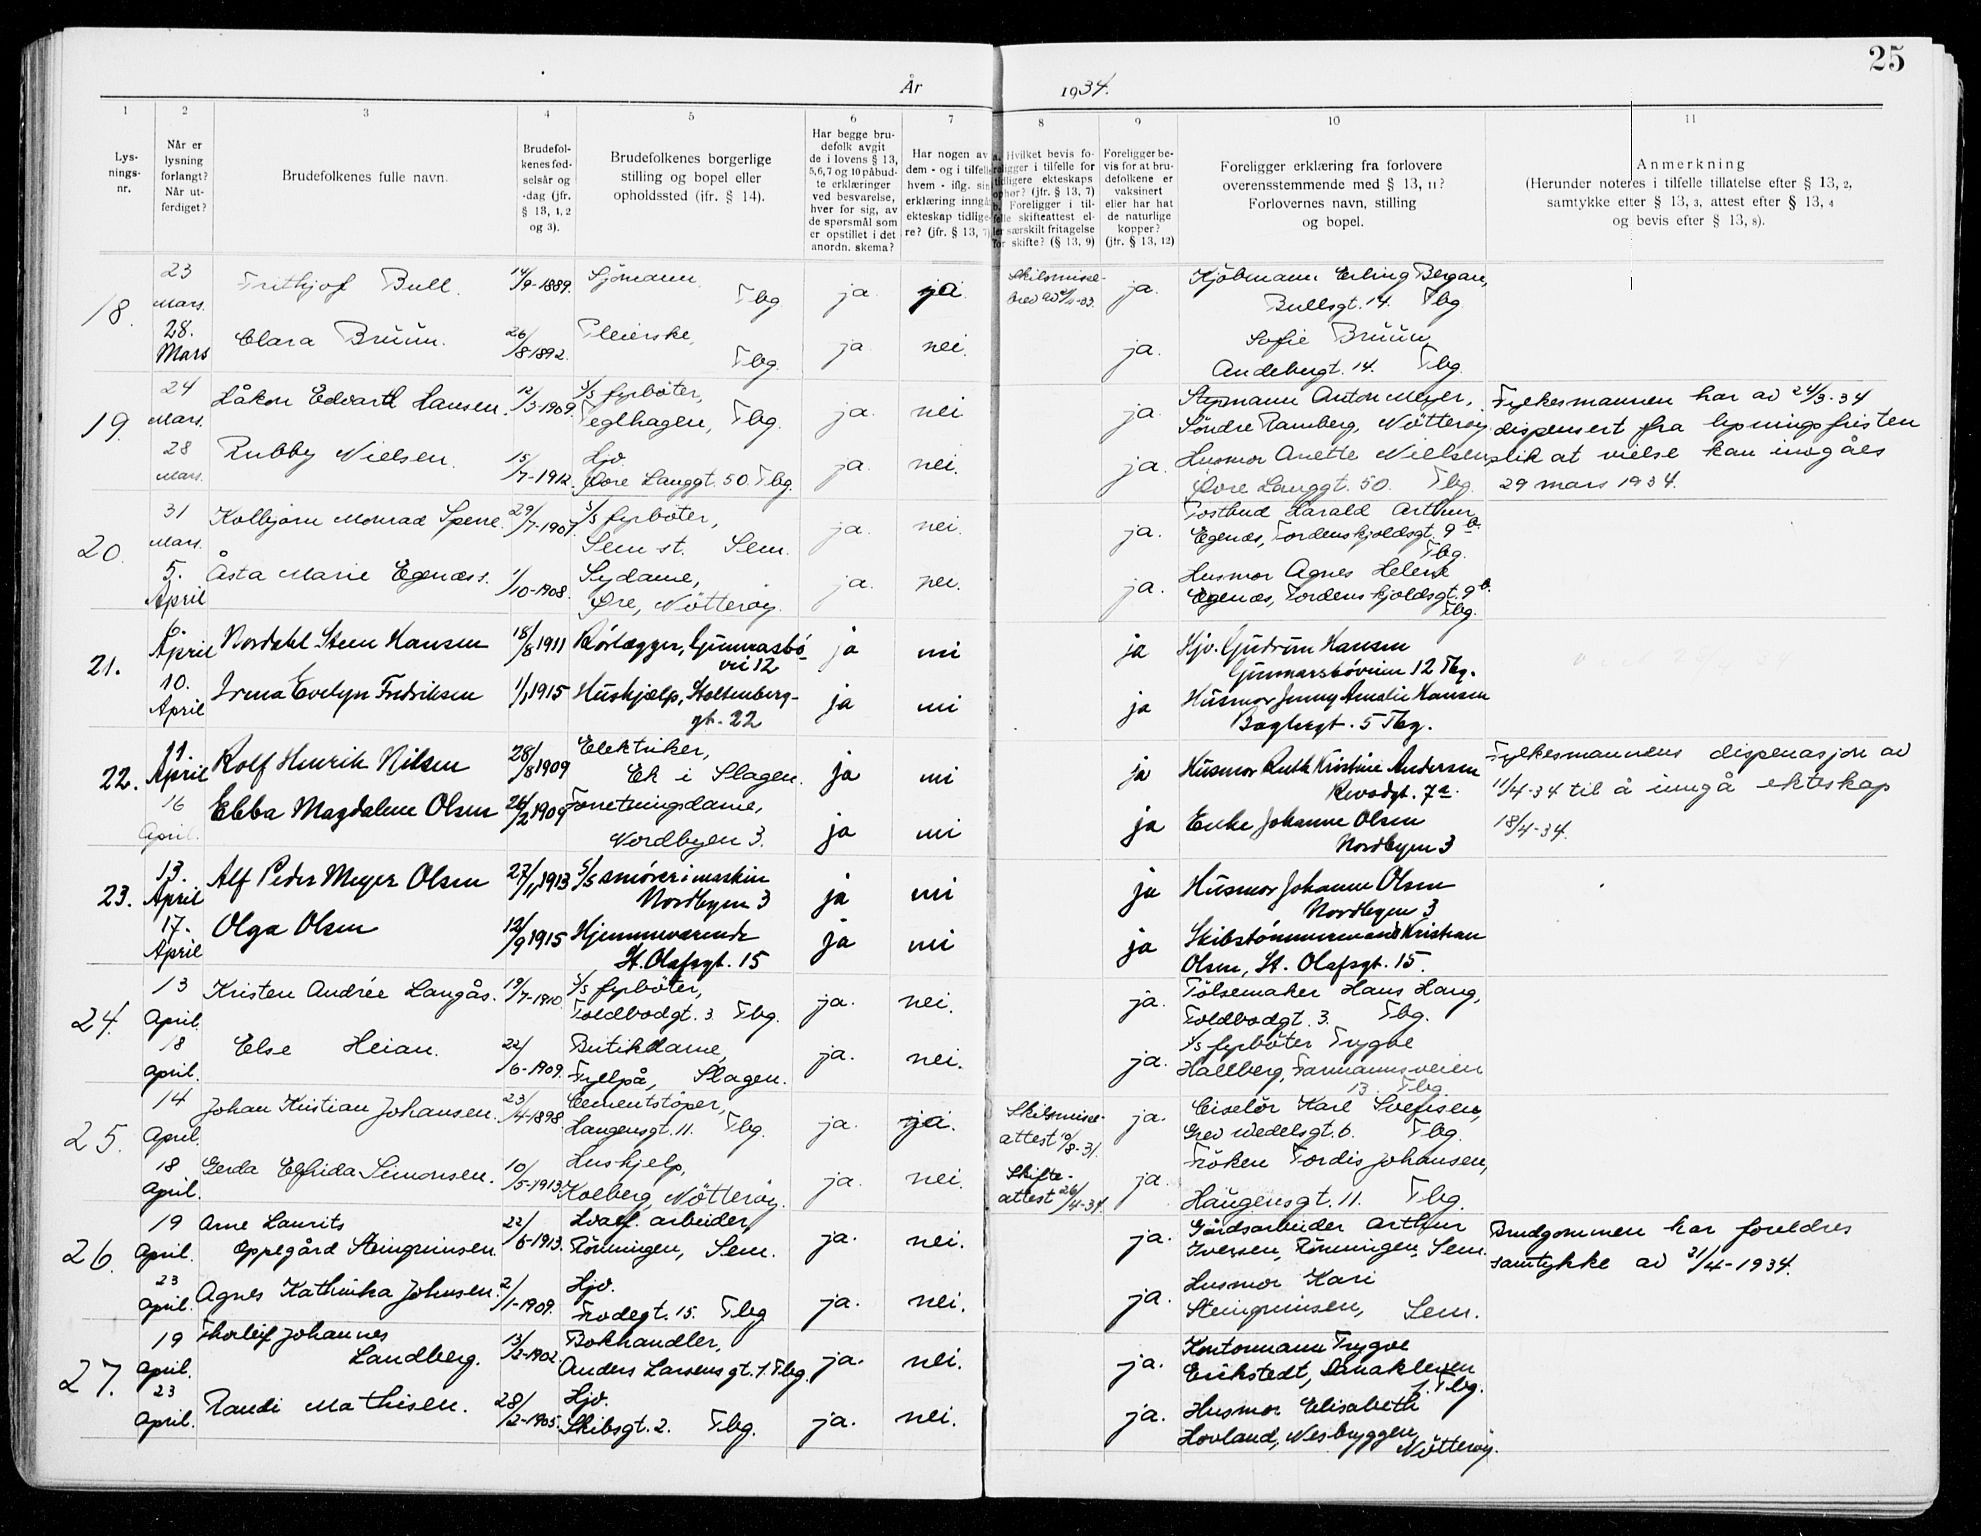 25
År 1934.
1 2 3 4 5 6 7 8 9 10 11
Lysningsnr.
Når er lysning forlangt? Når utferdiget?
Brudefolkenes fulle navn.
Brudefolkenes fødselsår og -dag (jfr. § 13, 1, 2 og 3).
Brudefolkenes borgerlige stilling og bopel eller opholdssted (jfr. § 14).
Har begge brudefolk avgit de i lovens § 13, 5, 6, 7 og 10 påbudte erklæringer ved besvarelse, hver for sig, av de spørsmål som er opstillet i det anordn. skema?
Har nogen av dem - og i tilfelle hvem - iflg. sin erklæring inngått ekteskap tidligere? (jfr. § 13, 7)
a. Hvilket bevis foreligger i tilfelle for tidligere ekteskaps ophør? (jfr. § 13, 7) b. Foreligger i tilfelle skifteattest eller særskilt fritagelse for skifte? (§ 13, 9)
Foreligger bevis for at brudefolkene er vaksinert eller har hat de naturlige kopper? (jfr. § 13, 12)
Foreligger erklæring fra forlovere overensstemmende med § 13, 11? Forlovernes navn, stilling og bopel.
Anmerkning (Herunder noteres i tilfelle tillatelse efter § 13, 2, samtykke efter § 13, 3, attest efter § 13, 4 og bevis efter § 13, 8).
18. 23 Mars. Frithjof Bull. 14/9-1889. Sjömann, Tbg ja. ja. Skilsmisse- brev av /11-33. ja. Kjöbmann Erling Bergan, Bullsgt. 14. Tbg.
28. Mars Clara Bruun. 26/8 1892. Pleierske, Tbg. ja. nei. ja. Sofie Bruun, Andebugt. 14. Tbg.
19. 24 Mars. Håkon Edvardt Hansen. 12/3-1909. s/s fyrböter, Teglhagen, Tbg. ja. nei ja. Styrmann Anton Meyer, Söndre Ramberg, Nötteröy. Fylkesmannen har av 24/3-34 dispensert fra lysningsfristen slik at vielse kan inngåes 29 mars 1934.
28 mars. Rubby Nielsen. 15/7-1912. Hjv. Övre Langgt. 50. Tbg. ja. nei. ja. Husmor Anette Nielsen, Övre Langgt. 50. Tbg.
20. 31 mars. Kolbjörn Monrad Sperre. 29/7-1907. s/s fyrböter, Sem st. Sem. ja. nei. ja. Postbud Harald Arthur Egenæs, Tordenskjoldsgt. 9 b. Tbg.
5. April Åsta Marie Egenæss. 1/10-1908. Sydame, Öre, Nötteröy. ja. nei. ja. Husmor Agnes Helene Egenæs, Tordenskjoldsgt. 9 b. Tbg.
21. 6. April Nordahl Steen Hansen 18/8 1911 Rörlægger, Gunnarsbö- vei 12 ja nei ja Hjv. Gudrun Hansen Gunnarsböveien 12 Tbg.
10. April Irma Evelyn Fredriksen 1/1 1915 Hushjælp, Stoltenberg- gt. 22 ja nei ja Husmor Jenny Amalie Hansen Baglergt. 5 Tbg.
22. 11. April Rolf Henrik Nilsen 28/8 1909 Elektriker, Ek i Slagen. ja nei ja Husmor Ruth Kristine Andersen Revsdgt. 7 a. Fylkesmannens dispenasjon av 11/4-34 til å inngå ekteskap 18/4-34.
16 April. Ebba Magdalene Olsen 26/2 1909 Forretningsdame, Nordbyen 3. ja nei ja Enke Johanne Olsen Nordbyen 3
23. 13. April Alf Peder Meyer Olsen 27/11 1913 s/s smörer i maskin Nordbyen 3 ja nei ja Husmor Johanne Olsen Nordbyen 3
17. April Olga Olsen 12/9 1915 Hjemmeværende St. Olafsgt. 15 ja nei ja Skibstömmermand Kristian Olsen, St. Olafsgt. 15.
24. 13 April. Kristen Andrée Langås. 19/7-1910. s/s fyrböter, Toldbodgt. 3. Tbg. ja. nei. ja. Pölsemaker Hans Haug, Toldbodgt. 3. Tbg.
18 april. Else Heian. 22/6-1909. Butikdame, Fyllpå, Slagen. ja. nei. ja. s/s fyrböter Trygve Hallberg, Farmannsveien 13. Tbg
25. 14 April. Johan Kristian Johansen. 23/4-1898. Cementstöper, Haugensgt. 11. Tbg. ja. ja. Skilsmisse- attest 10/8-31. ja. Ciselör Karl Svensen, Grev Wedelsgt. 6. Tbg.
18 april. Gerda Elfrida Simonsen. 10/5-1913. Huskjelp, Kolberg, Nötteröy. ja. nei. Skifte- attest 26/4-34. ja. Fröken Tordis Johansen, Haugensgt. 11. Tbg.
26. 19 April. Arne Laurits Oppegård Steingrimsen. 22/6-1913. Hvalf. arbeider, Rönningen, Sem. ja. nei. ja. Gårdsarbeider Arthur Iversen, Rönningen, Sem. Brudgommen har foreldres samtykke av 21/4-1934.
23 April. Agnes Kathinka Johnsen. 2/1-1909. Hjv. Frodegt. 15. Tbg ja. nei. ja. Husmor Kari Steingrimsen, Sem.
27. 19 April. Thorleif Johannes Landberg. 13/2-1902. Bokhandler, Anders Larsens gt. 1. Tbg. ja. nei. ja. Kontormann Trygve Erikstedt, 1. Tbg.
23 April. Randi Mathisen. 28/2-1905. Hjv. Skibsgt. 2. Tbg. ja. nei. ja. Husmor Elisabeth Hovland, Nesbryggen, Nötteröy.